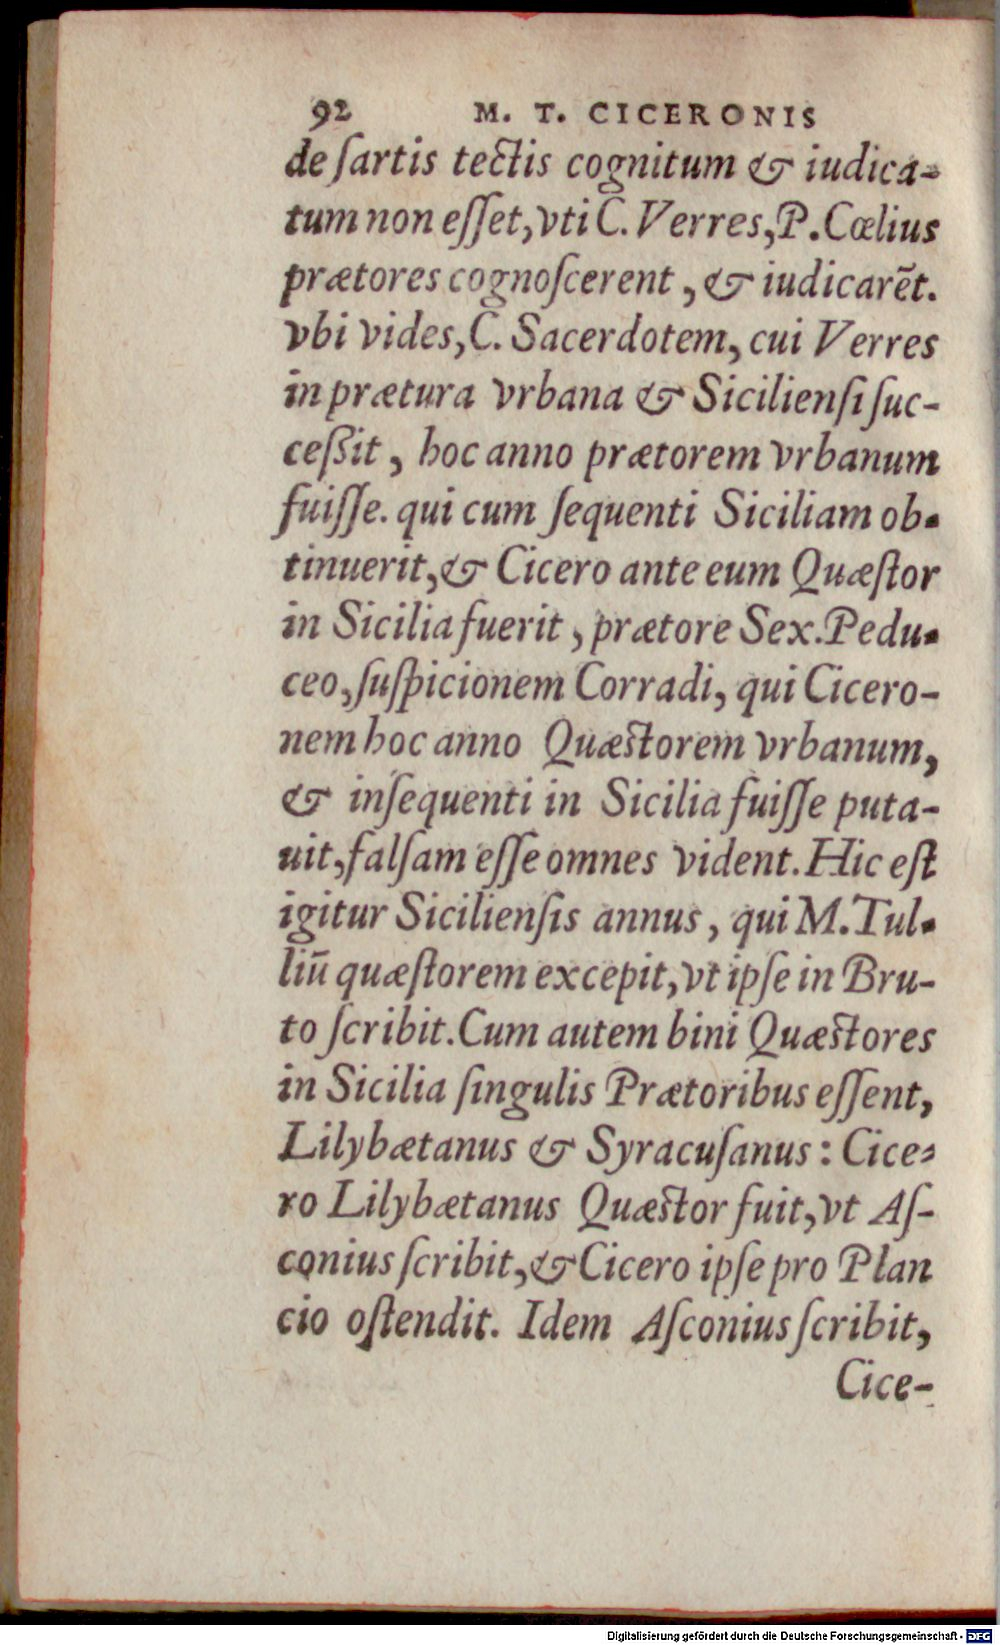 92 M. T. CICERONIS
de ſartis tectis cognitum & iudica-
tum non eſſet, vti C. Verres, P. Cœlius
prætores cognoſcerent, & iudicarēt.
vbi vides, C. Sacerdotem, cui Verres
in prætura vrbana & Sicilienſi ſuc-
ceßit, hoc anno prætorem vrbanum
fuiſſe. qui cum ſequenti Siciliam ob-
tinuerit, & Cicero ante eum Quæſtor
in Sicilia fuerit, prætore Sex. Pedu-
ceo, ſuſpicionem Corradi, qui Cicero-
nem hoc anno Quæstorem vrbanum,
& inſequenti in Sicilia fuiſſe puta-
uit, falſam eſſe omnes vident. Hic eſt
igitur Sicilienſis annus, qui M. Tul-
liū quæſtorem excepit, vt ipſe in Bru-
to ſcribit. Cum autem bini Quæstores
in Sicilia ſingulis Prætoribus eſſent,
Lilybætanus & Syracuſanus: Cice-
ro Lilybætanus Quæstor fuit, vt Aſ-
conius ſcribit, & Cicero ipſe pro Plan
cio oſtendit. Idem Aſconius ſcribit,
Cice-
Digitalisierung gefördert durch die Deutsche Forschungsgemeinschaft - DFG